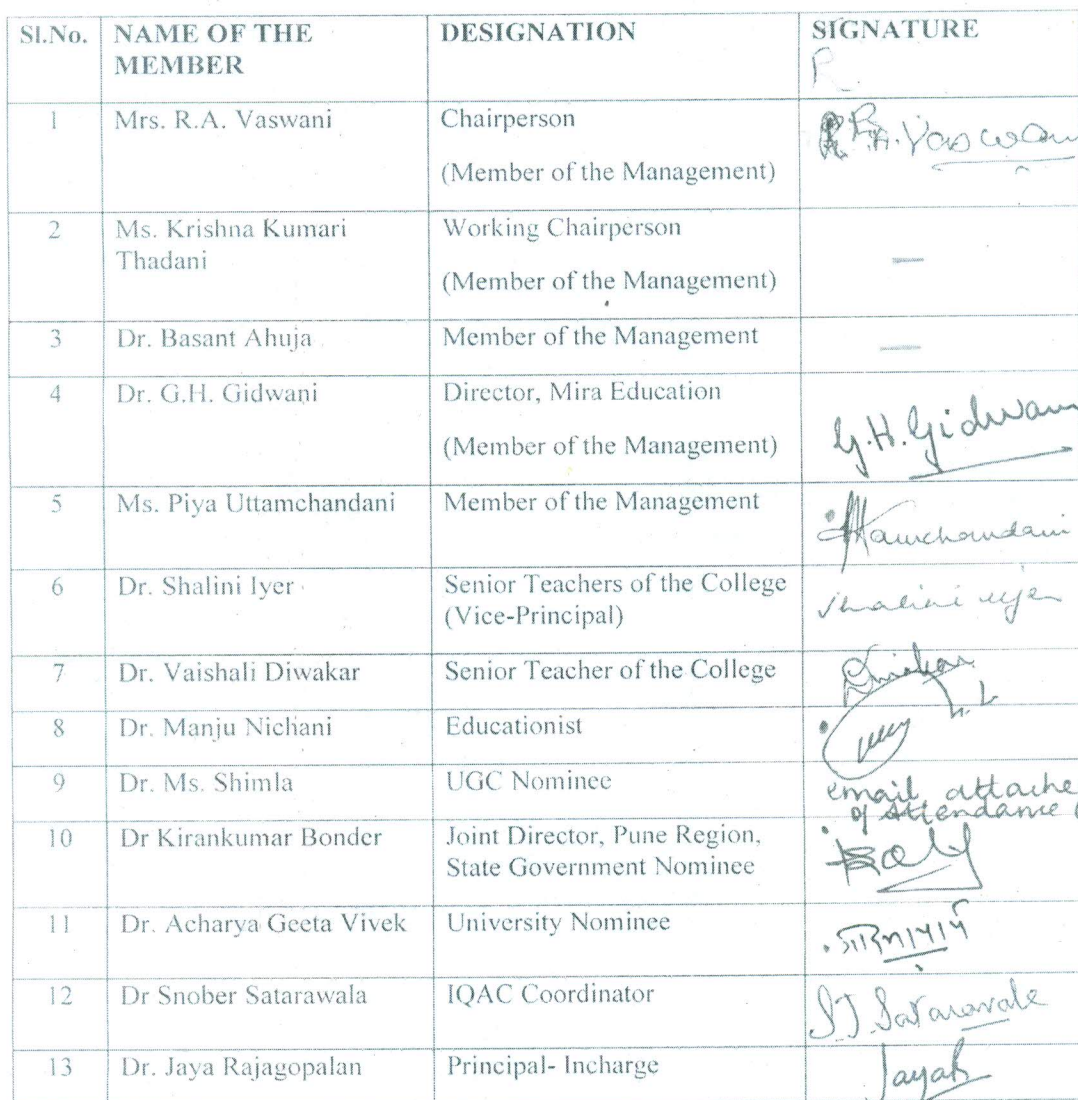 Sl.No. NAME OF THE MEMBER DESIGNATION SIGNATURE
R
1 Mrs. R.A. Vaswani Chairperson R.A. Vaswani
(Member of the Management)
2 Ms. Krishna Kumari Thadani Working Chairperson —
(Member of the Management)
3 Dr. Basant Ahuja Member of the Management —
4 Dr. G.H. Gidwani Director, Mira Education G.H. Gidwani
(Member of the Management)
5 Ms. Piya Uttamchandani Member of the Management
6 Dr. Shalini Iyer Senior Teachers of the College Shalini Iyer
(Vice-Principal)
7 Dr. Vaishali Diwakar Senior Teacher of the College
8 Dr. Manju Nichani Educationist
9 Dr. Ms. Shimla UGC Nominee email attache
of Attendance
10 Dr Kirankumar Bonder Joint Director, Pune Region,
State Government Nominee
11 Dr. Acharya Geeta Vivek University Nominee
12 Dr Snober Satarawala IQAC Coordinator S.J. Satarawala
13 Dr. Jaya Rajagopalan Principal- Incharge